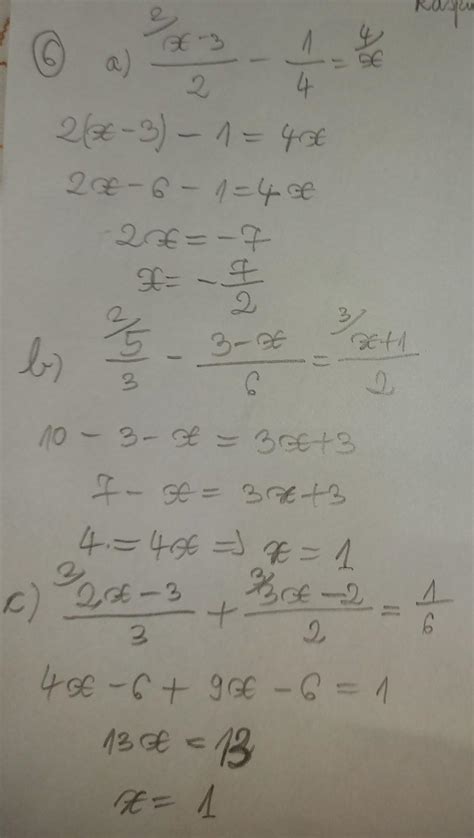 Raspi
6 a) 2/ x-3/2 - 1/4 = 4/ x
2(x-3) - 1 = 4x
2x - 6 - 1 = 4x
2x = -7
x = - 7/2
b) 2/ 5/3 - 3-x/6 = 3/ x+1/2
10 - 3 - x = 3x+3
7 - x = 3x+3
4 = 4x => x = 1
c) 2/ 2x-3/3 + 3/ 3x-2/2 = 1/6
4x - 6 + 9x - 6 = 1
13x = 13
x = 1